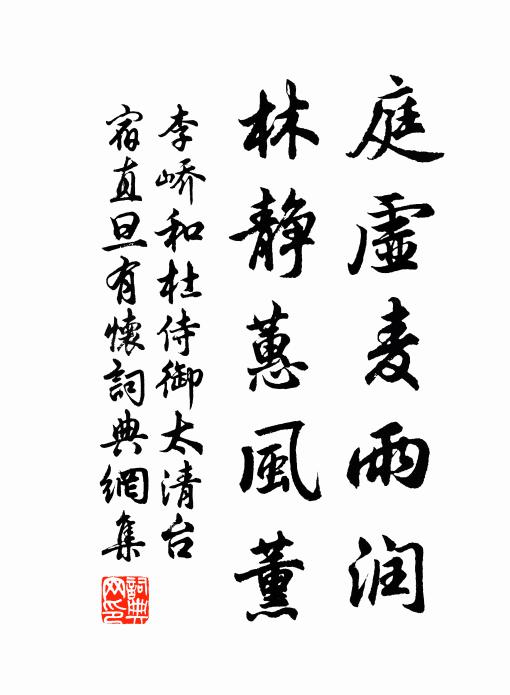 庭虛麦雨润
林静蕙風薰
李峤和杜侍御太清台
宿直旦有懷詞典網集
詞典
网印